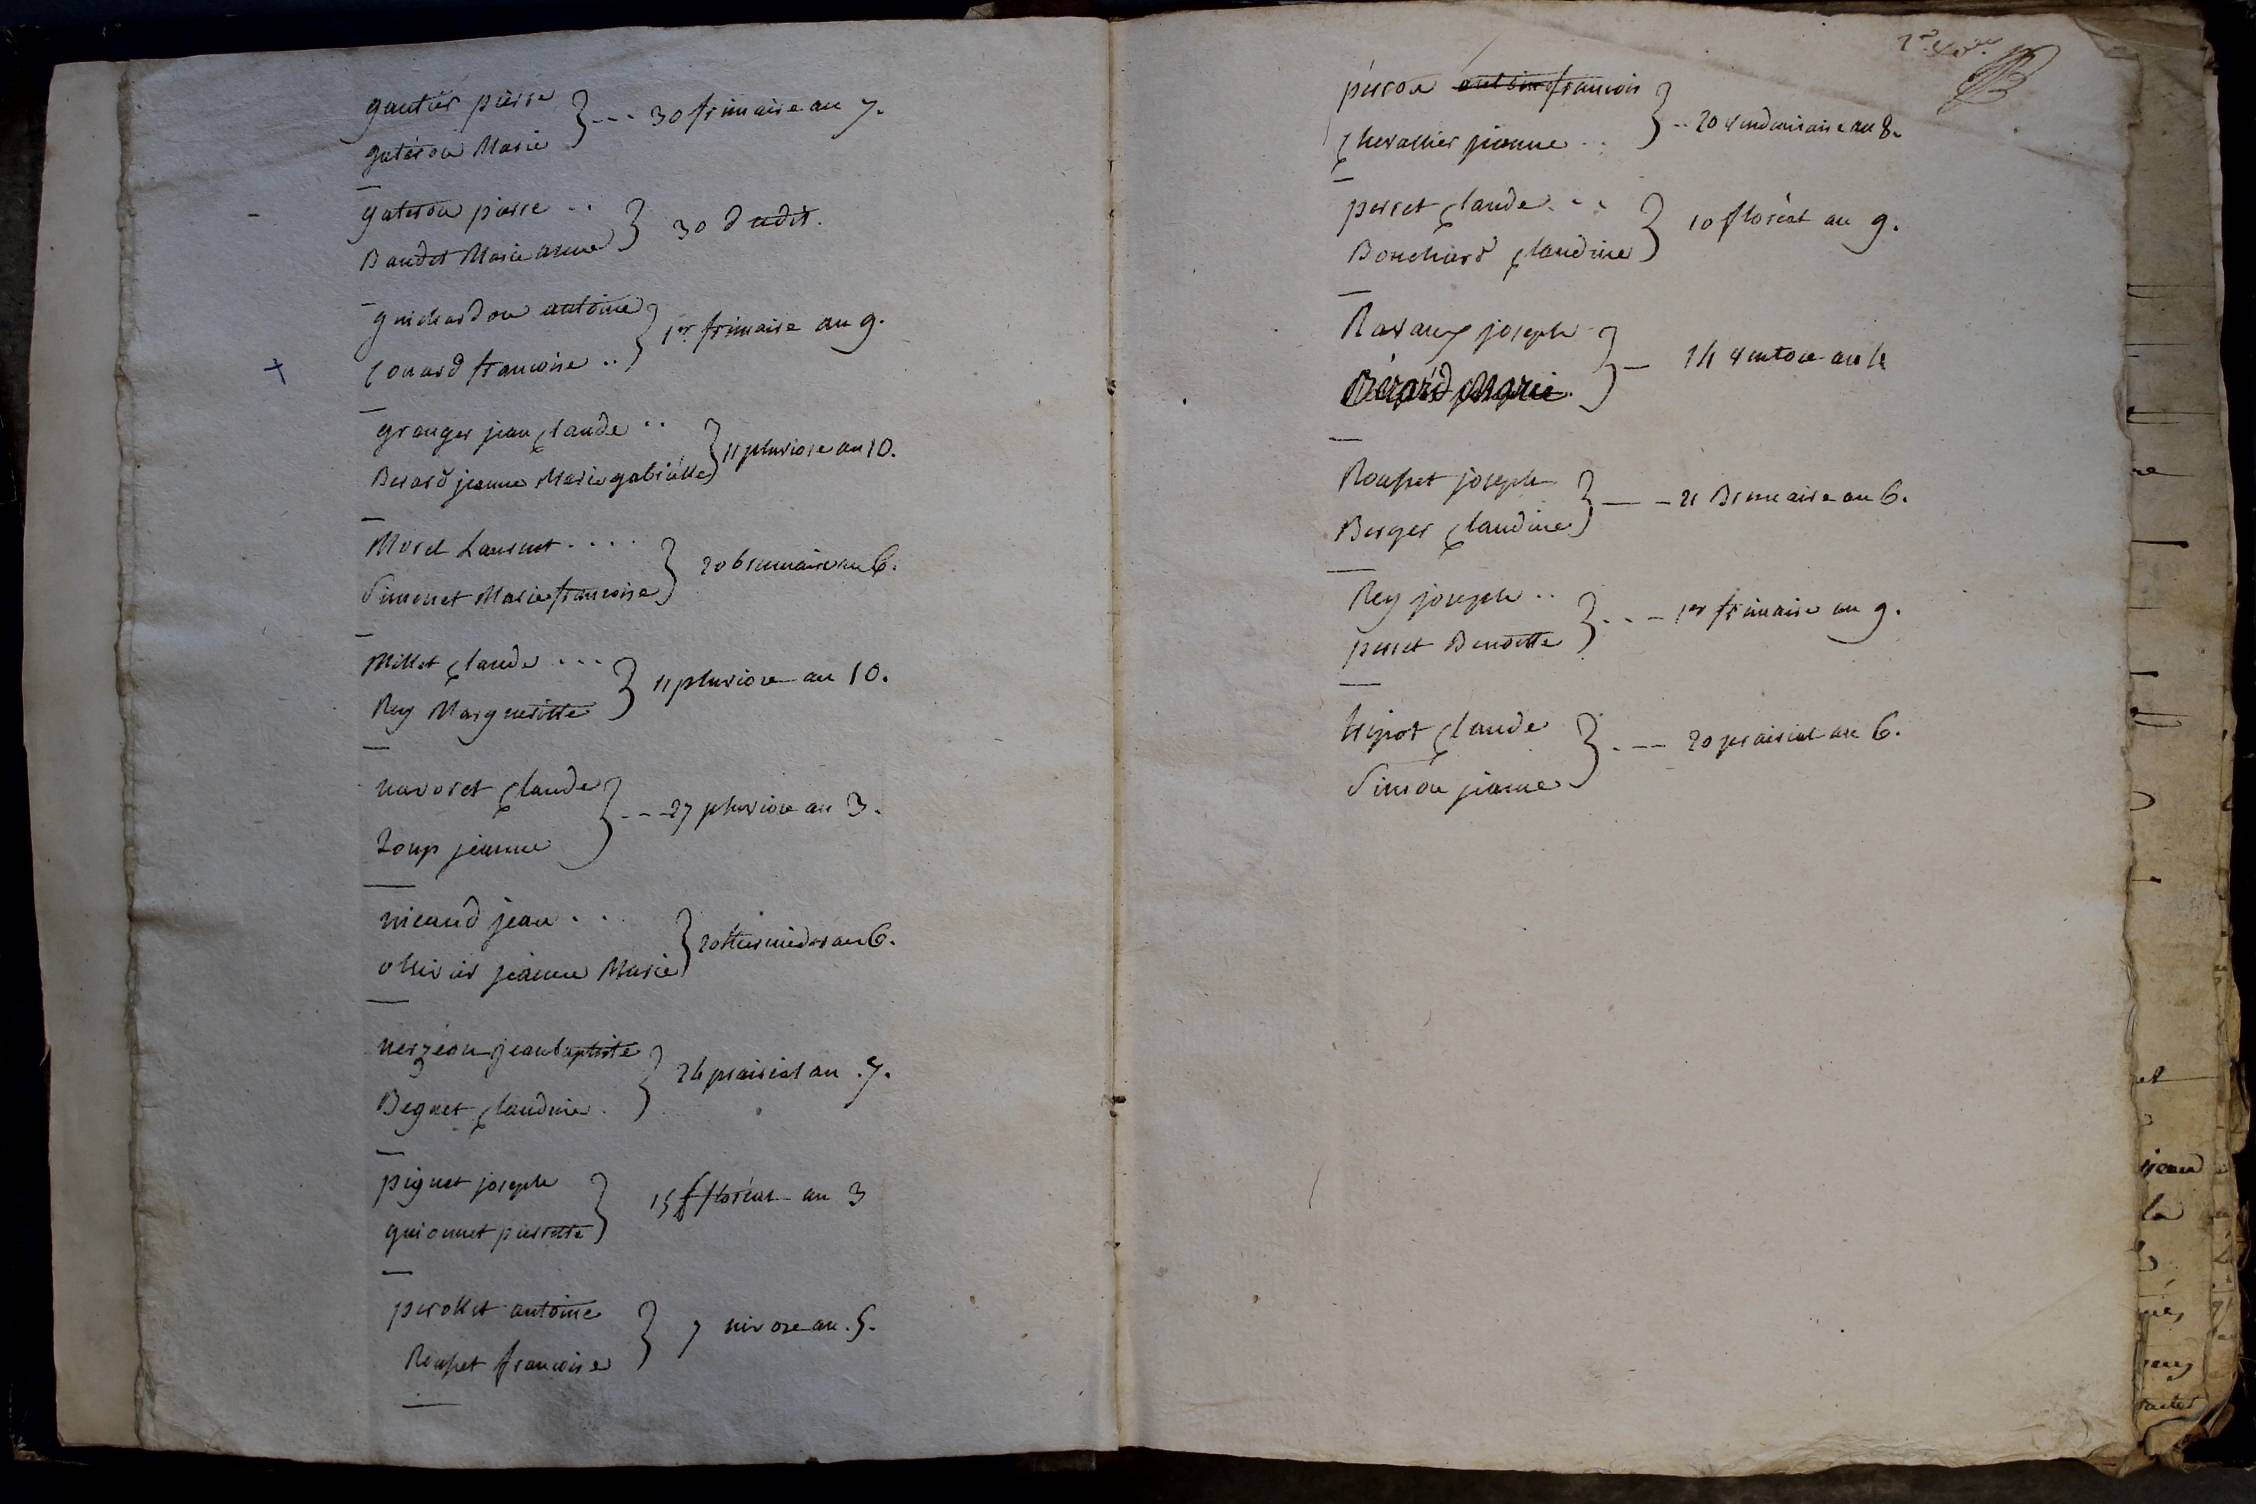 gautier pierre
gateron Marie } --- 30 frimaire an 7.
gateron pierre ..
Baudet Marie anne } 30 dudit.
guichardon antoine
Conard francoise .. } 1er frimaire an 9.
granger jean Claude ..
Berard jeanne Marie gabrielle } 11 pluviose an 10.
Morel Laurent ....
Simonet Marie francoise } 20 brumaire an 6.
Millet Claude ...
Rey Margueritte } 11 pluviose an 10.
navoret Claude
Loup jeanne } --- 27 pluviose an 3.
nicaud jean ..
ollivier jeanne Marie } 20 thermidor an 6.
jean baptiste
Beguet Claudine. } 24 prairial an .7.
piguet joseph
guionnet pierrette } 15 floréal an 3
perollet antoine
Rousset francoise } 7 nivose an .5.
pierron antoine francois
Chevallier jeanne .. } .. 20 vendemiaire an 8.
perret Claude ...
Bouchard Claudine } 10 floréal an 9.
Ravaux joseph
Bérard Marie. } — 14 ventose an 4
Rousset joseph
Berger Claudine } — — 21 Brumaire an 6.
Rey joseph ..
perret Benoitte } ... — 1er frimaire an 9.
tripot Claude
Simon jeanne } . -- 20 prairial an 6.